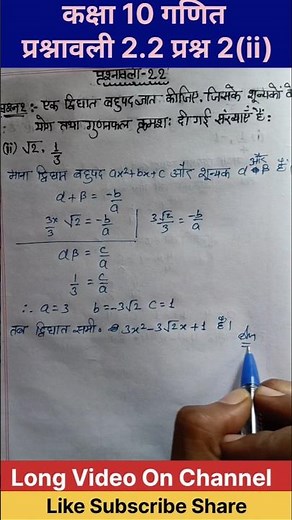 कक्षा 10 गणित
प्रश्नावली 2.2 प्रश्न 2(ii)
प्रश्नावली-2.2
प्रश्न २:- एक द्विघात बहुपद ज्ञात कीजिए, जिसके शून्यकों के
योग तथा गुणनफल क्रमशः दी गई संख्याएँ हैं:
(ii) √2, 1/3
माना द्विघात बहुपद ax²+bx+c और शून्यक α और β हैं
α+β = -b/a
3/3 × √2 = -b/a | 3√2/3 = -b/a
αβ = c/a
1/3 = c/a
∴ a=3 b=-3√2 c=1
तब द्विघात समी० 3x²-3√2x+1 हैं।
Long Video On Channel
Like Subscribe Share